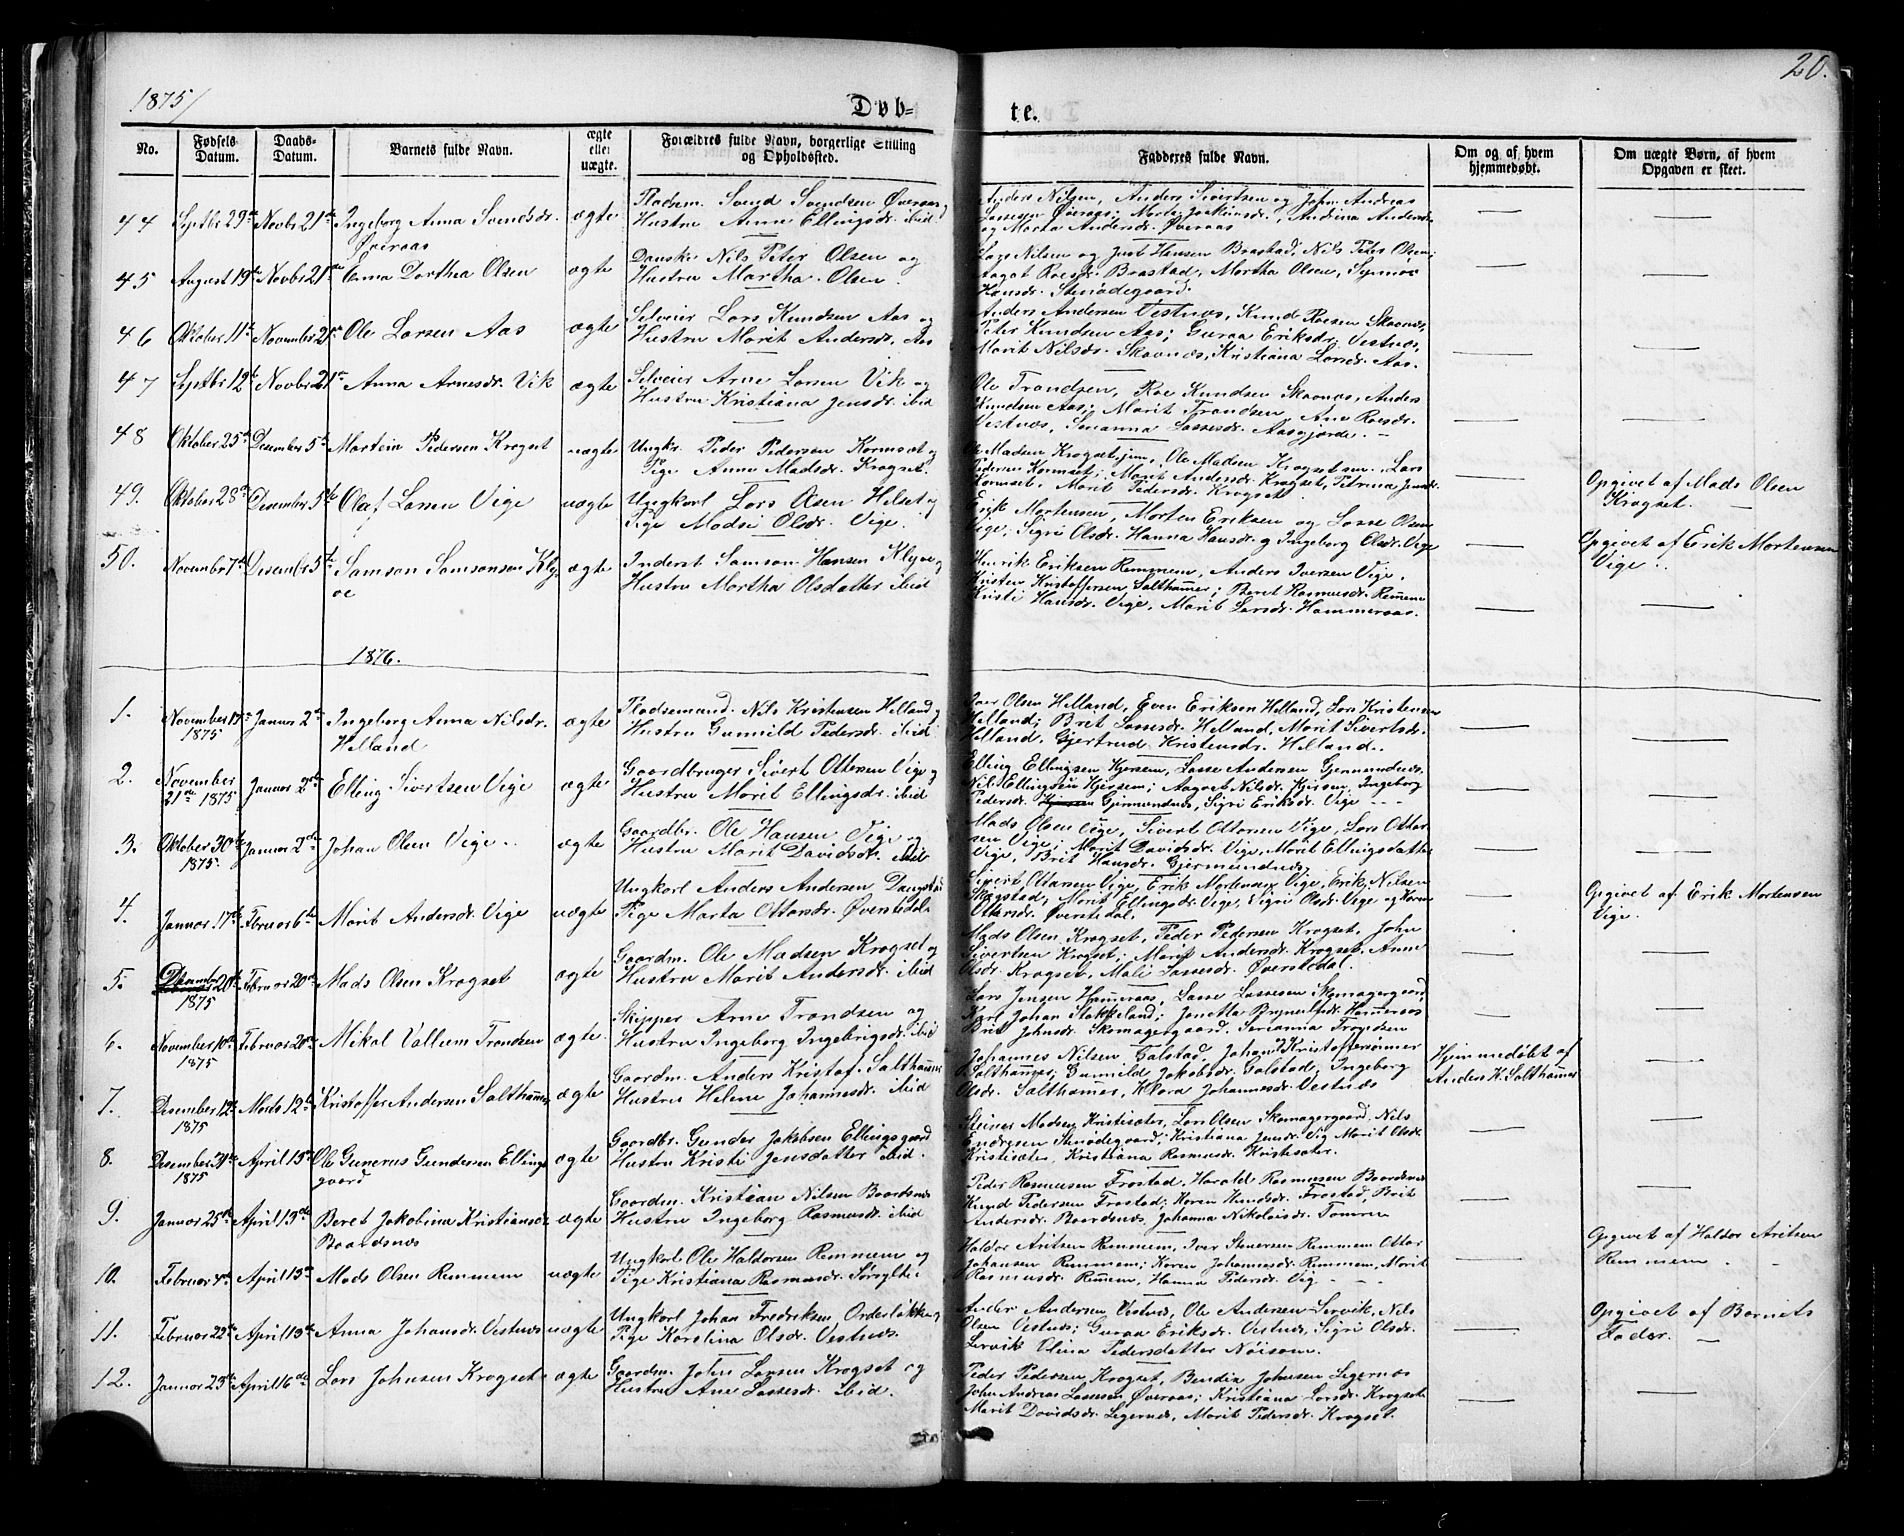 1875/
20.
Døb-
te.
No.
Fødsels Datum.
Daabs-Datum.
Barnets fulde Navn.
ægte eller uægte.
Forældres fulde Navn, borgerlige Stilling
og Opholdssted.
Fadderes fulde Navn.
Om og af hvem
hjemmedøbt.
Om uægte Børn, af hvem
Opgaven er skeet.
44 Septbr 29de Novbr 21de Ingeborg Anna Svendsdr. Øveraas ægte
Pladsm. Svend Svendsen Øveraas og
Hustru Anne Ellingsdr. ibid
Anders Nilsen, Anders Sivertsen og John Andreas
Lassesen Øveraas; Marta Joakimsdr., Andina Andersdr.
og Marta Andersdr. Øveraas
45 August 19de Novbr 21de Anna Dorthea Olsen ægte
Danske Nils Peter Olsen og
Hustru Martha Olsen.
Lars Nilsen og Just Hansen Brastad, Nils Peter Olsen;
Aagot Roesdr. Brastad, Martha Olsen, Synnøve
Hansdr. Stenødegaard.
46 Oktober 11te November 21de Ole Larsen Aas ægte
Selveier Lars Knudsen Aas og
Hustru Marit Andersdr. Aas
Anders Andersen Vestnæs, Knud Roesen Skaanæs,
Peter Knudsen Aas; Guraa Eriksdr. Vestnæs,
Marit Nilsdr. Skaanæs, Kristiana Larsdr. Aas.
47 Septbr 12te Novbr 21de Anna Arnesdr. Vik ægte
Selveier Arne Larsen Vik og
Hustru Kristiana Jensdr. ibid
Ole Trondsen, Roe Knudsen Skaanæs, Anders
Knudsen Aas; Marit Trondsen, Ane Roesdr.
Vestnæs, Susanna Lassesdr. Aasgjærde.
48 Oktober 25de Desember 5te Martein Pedersen Krogset uægte
Ungkr. Peder Pedersen Kormset og
Pige Anne Madsdr. Krogset.
Ole Madsen Krogset jun., Ole Madsen Krogset sen., Lars
Pedersen Kormset; Marit Andersdr. Krogset, Petrina Jensdr.
Kormset, Marit Pedersdr. Krogset.
Opgivet af Mads Olsen
Krogset.
49. Oktober 28de Desember 5te Olaf Larsen Vige uægte
Ungkarl Lars Olsen Helset og
Pige Madsi Olsdr. Vige.
Erik Mortensen, Morten Eriksen og Lasse Olsen
Vige, Sigri Olsdr. Hanna Hansdr. og Ingeborg Olsdr. Vige
Opgivet af Erik Mortensen
Vige.
50. Novembr 7de Desembr 5te Samson Samsonsen Klyvoe ægte
Inderst Samson Hansen Klyve og
Hustru Martha Olsdatter ibid
Henrik Eriksen Remmem, Anders Iversen Vige,
Kristen Kristoffersen Salthammer; Beret Rasmusdr. Remem
Kristi Hansdr. Vige, Marit Larsdr. Hammeraas.
1876.
1. November 17de 1875 Januar 2den Ingeborg Anna Nilsdr. Helland ægte
Pladsemand. Nils Kristensen Helland og
Hustru Gunnild Pedersdr. ibid
Olsen Helland, Even Eriksen Helland, Lars Kristensen
Helland; Bret Lassesdr. Helland, Marit Sivertsdr.
Helland, Gjertrud Kristensdr. Helland.
2. November 21de 1875 Januar 2den Elling Sivertsen Vige ægte
Gaardbruger Sivert Ottersen Vige og
Hustru Marit Ellingsdr. ibid
Elling Ellingsen Hjersem, Lasse Andersen Gjermundnæs
Nils Ellingsen Hjersem; Aagot Nilsdr. Hjersem, Ingeborg
Pedersdr. Gjermundnæs, Sigri Eriksdr. Vige
3. Oktober 30te 1875 Januar 2den Johan Olsen Vige ægte
Gaardbr. Ole Hansen Vige og
Hustru Marit Davidsdr. ibid
Mads Olsen Vige, Sivert Ottersen Vige, Lars Otter
sen Vige; Marit Davidsdr. Vige, Marit Ellingsdatter
Vige, Brit Hansdr. Gjermundnæs
4. Januar 17de Februar 6te Marit Andersdr. Vige uægte
Ungkarl Anders Andersen Daugstad
Pige Marta Ottersdr. Øverstedal
Sivert Ottarsen Vige, Erik Mortensen Vige, Erik Nilsen
Skogstad; Marit Ellingsdr. Vige, Sigri Olsdr. Vige og Karen
Ottersdr. Øverstedal.
Opgivet af Erik Mortensen
Vige.
5. Desember 20de 1875 Februar 20de Mads Olsen Krogset ægte
Gaardm. Ole Madsen Krogset og
Hustru Marit Andersdr. ibid
Mads Olsen Krogset, Peder Pedersen Krogset, John
Sivertsen Krogset; Marit Andersdr. Krogset, Anne
Olsdr. Krogset, Mali Lassesdr. Øverstedal.
6. November 10de 1875 Februar 20de Mikal Vallum Trondsen ægte
Skipper Arne Trondsen og
Hustru Ingeborg Ingebrigsdr. ibid
Lars Jensen Hameraas, Lasse Lassesen Skomagergaard,
Karl Johan Stokkeland; Jonetta Brynildsdr. Hameraas
Brit Johnsdr. Skomagergaard. Serianna Trondsen
7. Desember 12te 1875 Mads 12te Kristoffer Andersen Salthamer ægte
Gaardm. Anders Kristof. Salthamer
Hustru Helene Johannesdr. ibid
Johannes Nilsen Galstad, Johan Kristoffersønner
Salthamer; Gunnild Jakobsdr. Galstad, Ingeborg
Olsdr. Salthamer, Klara Johannesdr. Vestnæs
Hjemmedøbt af
Anders K. Salthamer
8. Desember 31te 1875 April 15de Ole Gunerus Gundersen Ellingsgaard ægte
Gaardbr. Gunder Jakobsen Ellingsgaard
Hustru Kristi Jensdatter ibid.
Steiner Madsen Kristisæter, Lars Olsen Skomagergaard, Nils
Endresen Stenødegaard; Kristiana Jensdr. Vig Marit Olsdr.
Kristisæter, Kristiana Rasmusdr. Kristisæter.
9. Januar 25de April 13de Beret Jakobina Kristiansdr. Baardsnæs ægte
Gaardm. Kristian Nilsen Baardsnæs
Hustru Ingeborg Rasmusdr. ibid
Peder Rasmussen Frostad, Harald Rasmussen Baardsnæs
Knud Pedersen Frostad; Karen Knudsdr. Frostad, Brit
Andersdr. Baardsnæs, Johanna Nikolaisdr. Tomren
10. Februar 4de April 13de Mads Olsen Remmem uægte
Ungkarl Ole Haldorsen Remmem og
Pige Kristiana Rasmusdr. Sørsylte
Haldor Aritsen Remmem, Iver Stenersen Remmem Ottar
Johansen Remmem; Karen Johannesdr. Remmem, Marit
Rasmusdr. Remem, Hanna Pedersdr. Vig
Opgivet af Haldor Aritsen
Remmem
11. Februar 22de April 13de Anna Johansdr. Vestnæs uægte
Ungkarl Johan Fredriksen, Orderløkken og
Pige Karolina Olsdr. Vestnæs.
Anders Andersen Vestnæs, Ole Andersen Lervik, Nils
Olsen Vestnæs; Guraa Eriksdr. Vestnæs, Sigri Olsdr.
Lervik Olina Pedersdatter Nøisom.
Opgivet af Barnets
Fader.
12. Januar 23de April 16de Lars Johnsen Krogset ægte
Gaardm. John Larsen Krogset og
Hustru Ane Lassesdr. ibid.
Peder Pedersen Krogset, Bendix Johnsen Legernæs
John Andreas Lassesen Øveraas; Kristiana Larsdr. Krogset
Marit Davidsdr. Legernæs, Marit Pedersdr. Krogset.